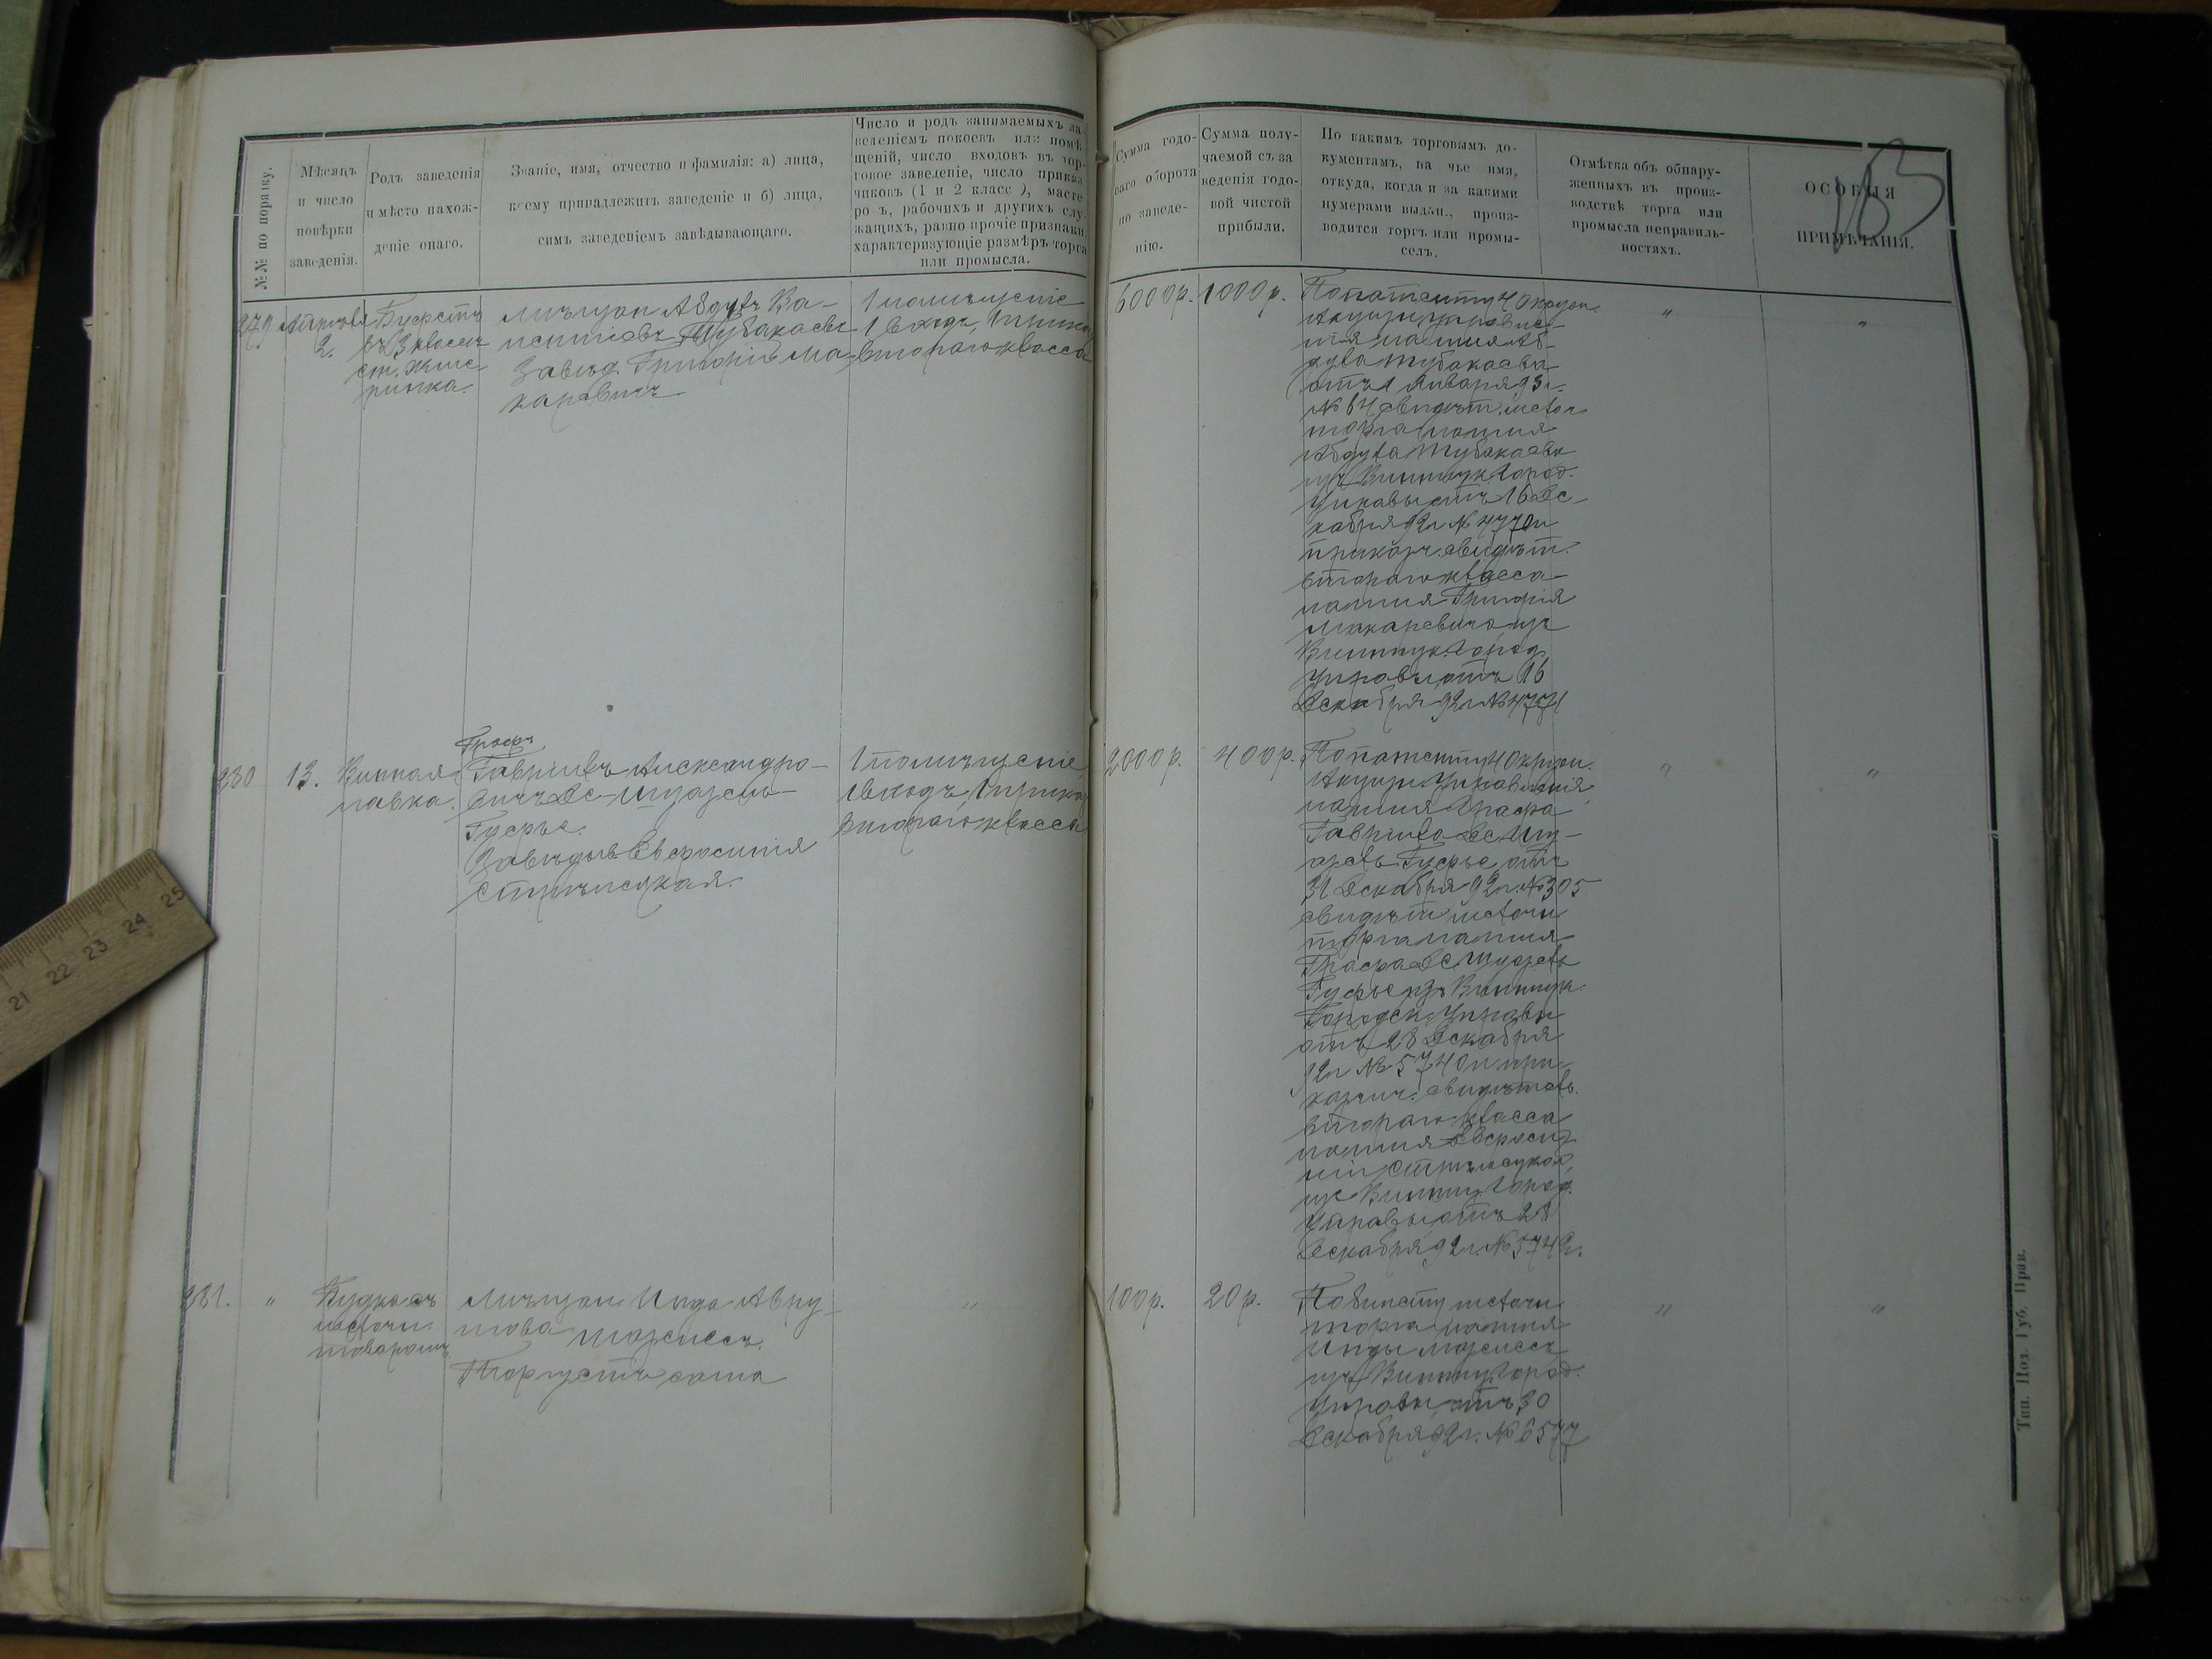 №№ по порядку.
Мѣсяцъ
и число
повѣрки
заведенія.
Родъ заведенія
и мѣсто нахож-
деніе онаго.
Званіе, имя, отчество и фамилія: а) лица,
коему принадлежитъ заведеніе и б) лица,
симъ заведеніемъ завѣдывающаго.
Число и родъ занимаемыхъ за-
веденіемъ покоевъ или помѣ-
щеній, число входовъ въ тор-
говое заведеніе, число приказ
чиковъ (1 и 2 класс ), масте
ро ъ, рабочихъ и другихъ слу-
жащихъ, равно прочіе признаки,
характеризующіе размѣръ торга
или промысла.
Сумма годо-
ваго оборота
по заведе-
нію.
Сумма полу-
чаемой съ за
веденія годо-
вой чистой
прибыли.
По какимъ торговымъ до-
кументамъ, на чье имя,
откуда, когда и за какими
нумерами выдан., произ-
водится торгъ или промы-
селъ.
Отмѣтка объ обнару-
женныхъ въ произ-
водствѣ торга или
промысла неправиль-
ностяхъ.
ОСОБЫЯ
ПРИМѢЧАНІЯ.
279
2.
Буфетъ
въ 3 классѣ
ст. Жме-
ринка.
Мѣщан
Завѣд. Григорій Ма-
каревичъ
1 помѣщеніе
1 входъ, 1 приказ
второго класса
6000р.
1000р.
По патенту 4 Округа
Акцизн. управле-
нія на имя Аб-
отъ 1 Января 93г.
№ 64 свидѣт. мелоч
торга на имя
изъ Винницк. Город.
Управы отъ 16 Де-
кабря 92г № 4770 и
приказч. свидѣт.
второго класса
на имя Григорія
Макаревича изъ
Винницк. Город.
Управы отъ 16
Декабря 92г № 4771
"
"
280
13.
Винная
лавка.
Графъ
Гавріилъ Александро-
вичъ Де-
Завѣдыв. Евфросинія
1 помѣщеніе,
1 входъ, 1 приказ
второго класса
2000р.
400р.
По патенту 4 Округа.
Акцизн. Управленія
на имя Графа
Гавріила Де
отъ
31 Декабря 92г. № 305
свидѣт. мелочн
торга на имя
Графа Де
изъ Винницк.
Городск. Управы
отъ 28 Декабря
92г № 5740 и при-
казчич. свидѣтель.
второго класса
на имя Евфроси-
ніи
изъ Винниц. Город.
Управы отъ 28
Декабря 92г. № 5742.
"
"
281.
"
Будка съ
мелочн.
товаромъ
Мѣщан.
Торгуетъ сама
"
100р.
20р.
По билету мелочн.
торга на имя
изъ Винниц. Город.
Управы отъ 30
Декабря 92г. № 6577
"
"
Тип. Под. Губ. Прав.